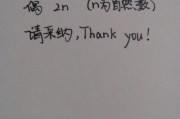 偶 2n (n为自然数)
请采纳,Thank you!